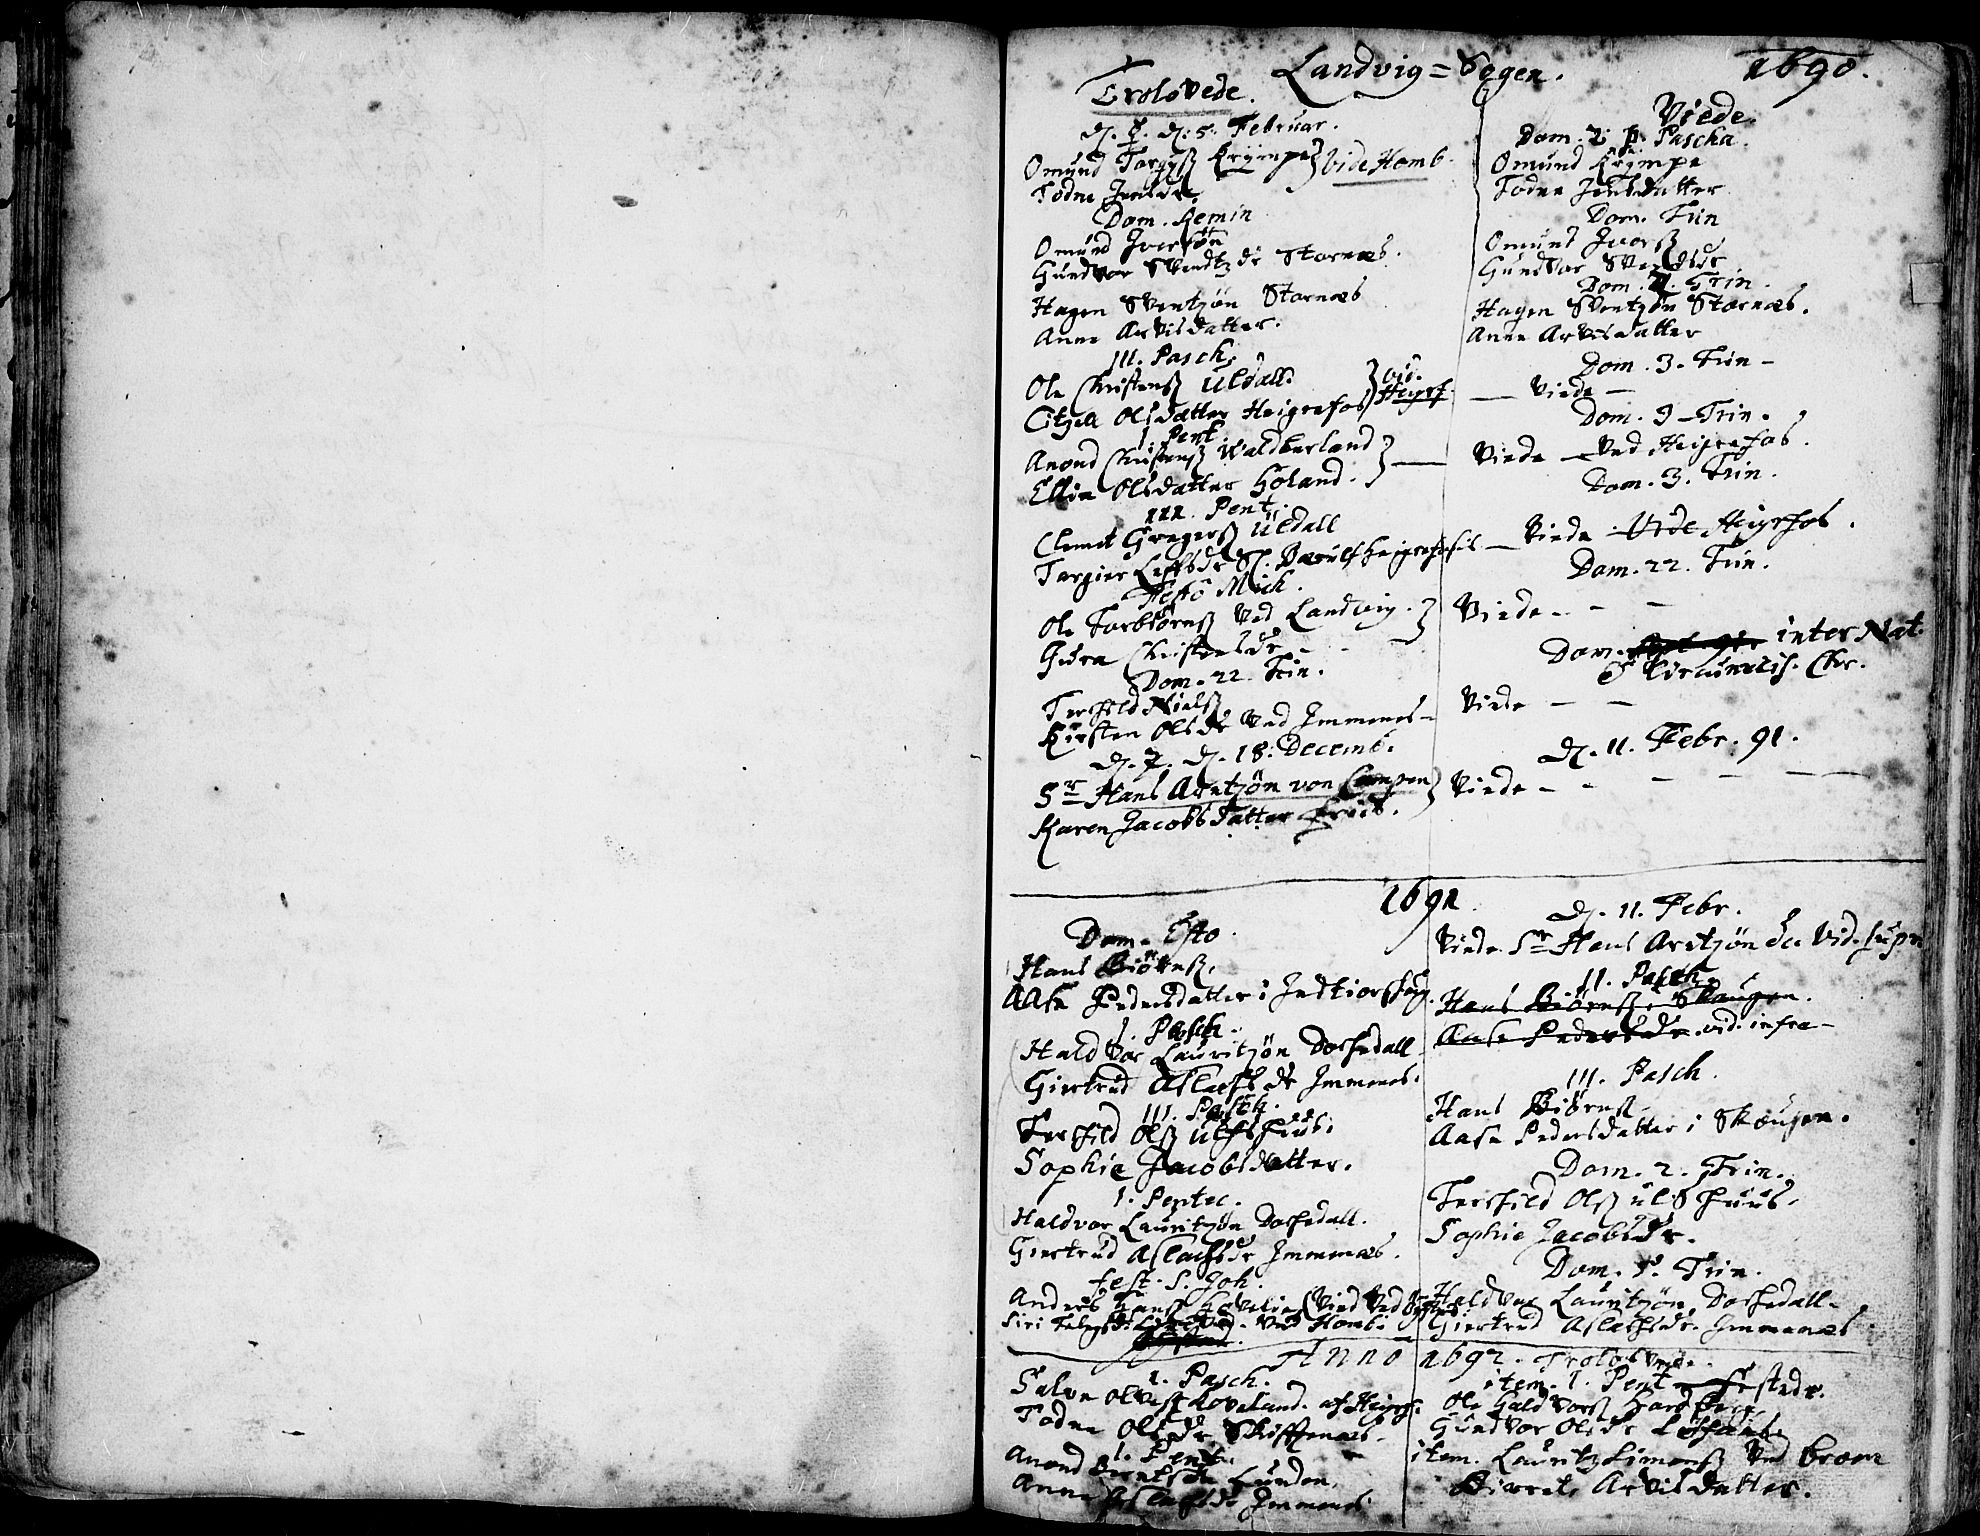 Landvig = Sogen. 1690.
Trolovede.
d. 5. Februar.
Omund Torgyß Krympe } vide Homb.
Todne Jensdr.
Dom. Remin
Omund Iversøn
Gundvor Svendtzdr Stornæs.
Hagen Sventzøn Stornæs
Anne Arvisdatter.
III. Pasch.
Ole Christenß Uldall. } vid.
Olsdatter Heigrefos } Heigrf.
1. Pent
Anond Christenß Waldberland }
Ellin Olsdatter Høland. }
III. Pent.
Clemet Gregerß Uldall
Torgier Leffsdr
Festo Mich.
Ole Torbiørnß ved Landvig. }
Christensdr
Dom. 22. Trin.
Terchild Nielß
Kirsten Olsdr ved Immenes
d. 18. Decemb.
Sr Hans Arntzøn von Campen }
Karen Jacobsdatter
Viede.
Dom. 2. p. Pascha.
Omund Krympe
Todne Jensdatter
Dom. Trin
Omund Iverß
Gundvor Svendsdr
Dom. Trin.
Hagen Sventzøn Stornæs.
Anne Arvisdatter
Dom. 3. Trin —
— Viede —
Dom. 9 Trin.
Viede — ved Heigrefos.
Dom. 3. Trin.
— Viede Heigrfos.
Dom. 22. Trin.
Viede - - -
Dom. inter Nat.
& Circumcis. Chr.
Viede — —
d. 11. Febr. 91.
Viede - - — — —
1691
Dom. Esto
Hans Biørnß,
Aase Pedersdatter i
1. Pasch.
Haldvor Lauritzøn Dorfedall
Giertrud Aslachsdr Immenes.
III. Pasch.
Terchild Olß Ulfshuus.
Sophie Jacobsdatter.
1. Pentec.
Haldvor Lauritzøn Dorfedall.
Giertrud Aslachsdr Immenæs.
Fest. S. Joh.
Anders Hanß
Siri ved Homb.
d. 11. Febr.
Viede Sr Hans Arntzøn etc vid. supr
II. Pasch.
Hans Biørnß, Skougen.
Aase Pedersdr vid. infra —
III. Pasch.
Hans Biørnß
Aase Pedersdatter i Skougen.
Dom. 2. Trin.
Terchild Olß Ulfshuus.
Sophie Jacobsdr.
Dom. 5. Trin.
Haldvor Lauritzøn, Dorfedall
Giertrud Aslachsdr. Immenæs
Anno 1692. Trolovede.
1. Pasch.
Salve Olveß Roveland. af Heigrf.
Todne Olsdr Skifftenæs.
1. Pent.
Anond Berntsøn Lunden,
Anne Aslachsdr Immenes
item. 1. Pent
Ole Haldvorß
Gundvor Olsdr
item. Lauritz Simonß ved Broen
Birrete Arvisdatter.